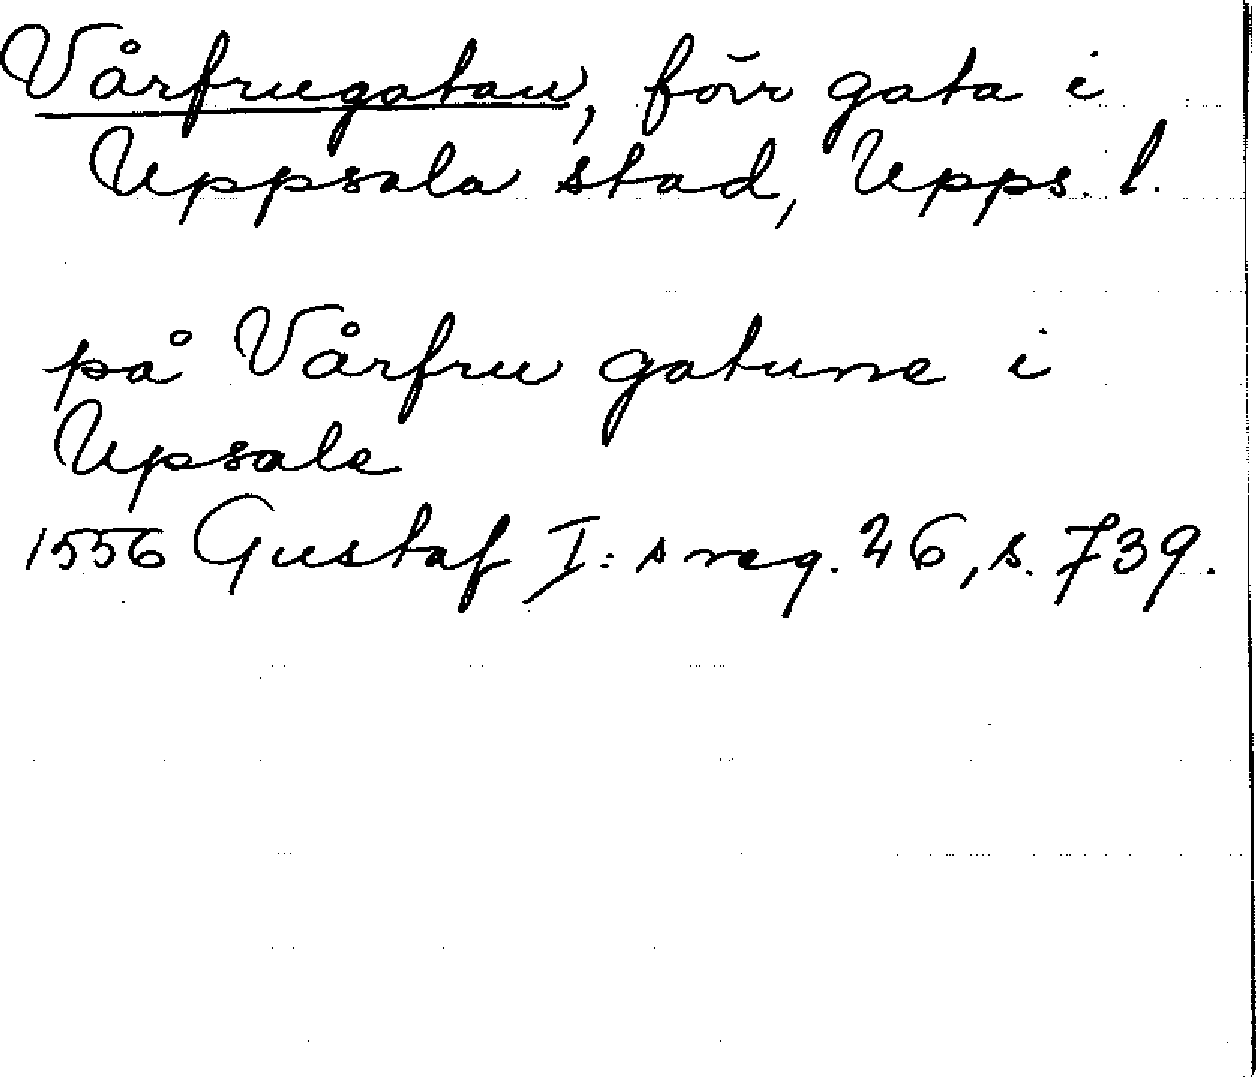 Vårfrugatan, förr gata i
Uppsala stad, Upps. l.
på Vårfru gatune i
Upsala
1556 Gustaf I:s reg. 26, s. 739.